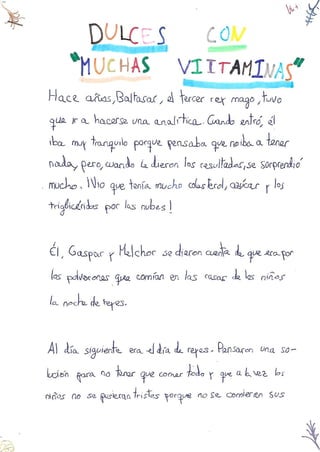 DULCES CON
"MUCHAS VIITAMINAS"
Hace años, Baltasar, el tercer rey mago, tuvo
que ir a hacerse una analítica. Cuando entró, él
iba muy tranquilo porque pensaba que no iba a tener
nada, pero, cuando le dieron los resultados, se sorprendió
mucho. ¡Vio que tenía mucho colesterol, azúcar y los
triglicéridos por las nubes!
Él, Gaspar y Melchor se dieron cuenta de que era por
los polvorones que comían en las casas de los niños
la noche de reyes.
Al día siguiente era el día de reyes. Pensaron una so-
lución para no tener que comer todo y que a la vez los
niños no se pusieran tristes porque no se comieran sus